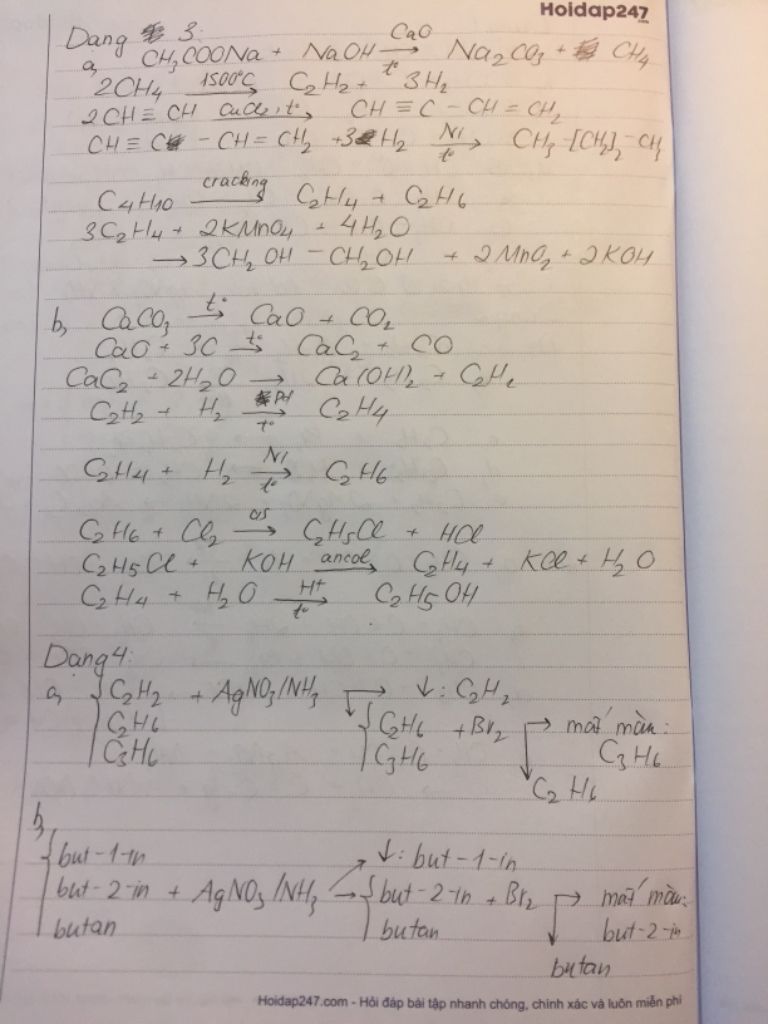 Hoidap247
Dạng 3:
a, CH₃COONa + NaOH —CaO, t°→ Na₂CO₃ + CH₄
2CH₄ —1500°C→ C₂H₂ + 3H₂
2CH ≡ CH —CuCl₂, t°→ CH ≡ C – CH = CH₂
CH ≡ C – CH = CH₂ + 3H₂ —Ni, t°→ CH₃-[CH₂]₂-CH₃
C₄H₁₀ —cracking→ C₂H₄ + C₂H₆
3C₂H₄ + 2KMnO₄ + 4H₂O
→ 3CH₂OH – CH₂OH + 2MnO₂ + 2KOH
b, CaCO₃ —t°→ CaO + CO₂
CaO + 3C —t°→ CaC₂ + CO
CaC₂ + 2H₂O → Ca(OH)₂ + C₂H₂
C₂H₂ + H₂ —Pd, t°→ C₂H₄
C₂H₄ + H₂ —Ni, t°→ C₂H₆
C₂H₆ + Cl₂ —as→ C₂H₅Cl + HCl
C₂H₅Cl + KOH —ancol→ C₂H₄ + KCl + H₂O
C₂H₄ + H₂O —H⁺, t°→ C₂H₅OH
Dạng 4:
a, C₂H₂ + AgNO₃/NH₃ → ↓: C₂H₂
C₂H₆ C₂H₆ + Br₂ → mất màu:
C₃H₆ C₃H₆ C₃H₆
C₂H₆
b,
but-1-in ↓: but-1-in
but-2-in + AgNO₃/NH₃ → but-2-in + Br₂ → mất màu:
butan butan but-2-in
butan
Hoidap247.com - Hỏi đáp bài tập nhanh chóng, chính xác và luôn miễn phí